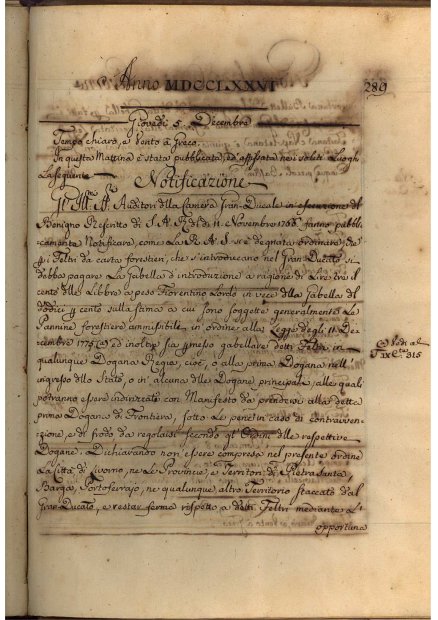 Anno MDCCLXXVI
289
Giovedì 5. Decembre
Tempo chiaro, e vento a Greco
In questa Mattina è stata pubblicata, ed affissata nei soliti Luoghi
La seguente
Notificazione
Auditori della Camera Gran-Ducale in esecuzione del
Benigno Rescritto di S. A. R. de dì 11. Novembre fanno pubbli-
camente Notificare, come La R. A. S. si è degnata ordinare, che
p i Feltri da carta forestieri, che s'introducano nel Gran Ducato si
debba pagare La Gabella d'introduzione a ragione di Lire tre il
cento delle Libbre a peso Fiorentino Lordo in vece della Gabella del
dodici p cento sulla stima a cui sono soggette generalmente Le
Pannine forestiere ammissibili in ordine alla Legge degli 11 De-
cembre 1775 (a) ed inoltre sia permesso gabellare detti Feltri in
qualunque Dogana Regia, cioè, o alla prima Dogana nell'
ingresso dello Stato, o in alcuna delle Dogane principali, alle quali
potranno essere indirizzati con Manifesto da prendersi alla dette
prime Dogane di Frontiera, sotto Le pene in caso di contravven-
zione, e di frodo da regolarsi secondo gl'Ordini delle respettive
Dogane. Dichiarando non essere comprese nel presente ordine
La Città di Livorno, ne Le Provincie, e Territori di Pietrasanta,
Barga, Portoferrajo, ne qualunque altro Territorio staccato dal
Gran Ducato, e restar ferma rispetto a detti Feltri mediante L'
opportuna
(a) Vedi a
315